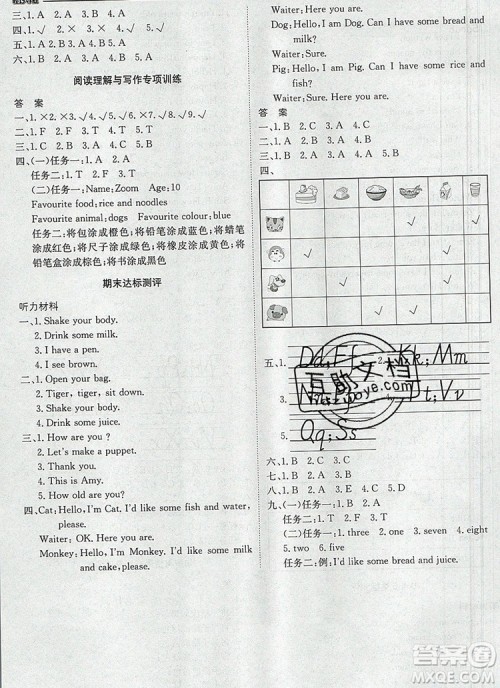 三、1. A 2. A 3. A
四、1. √ 2. × 3. × 4. √ 5. √
五、1. A 2. A 3. C 4. B 5. A
六、1. B 2. C 3. A 4. B
阅读理解与写作专项训练
答 案
一、1. × 2. √ 3. √ 4. × 5. √ 6. √ 7. × 8. √ 9. √
二、1. T 2. F 3. F 4. T 三、1. B 2. A 3. A
四、(一)任务一:1. A 2. A
任务二:1. F 2. T
(二)任务一:Name: Zoom Age: 10
Favourite food; rice and noodles
Favourite animal; dogs Favourite colour; blue
任务二:将包涂成橙色;将铅笔涂成蓝色;将蜡
笔涂成红色;将尺子涂成绿色;将橡皮涂成黄色;将
铅笔盒涂成棕色;将书涂成黑色
期末达标测评
听力材料
一、1. Shake your body.
2. Drink some milk.
3. I have a pen.
4. I see brown.
二、1. Open your bag.
2. Tiger, tiger, sit down.
3. Shake your body.
4. Drink some juice.
三、1. How are you ?
2. Let's make a puppet.
3. Thank you.
4. This is Amy.
5. How old are you?
四、Cat: Hello, I'm Cat. I'd like some fish and water,
please.
Waiter: OK. Here you are.
Monkey: Hello, I'm Monkey. I'd like some milk
and cake, please.
Waiter: Here you are.
Dog: Hello, I am Dog. Can I have some bread and
milk?
Waiter: Sure.
Pig: Hello, I am Pig. Can I have some rice and
fish?
Waiter: Sure. Here you are.
答 案
一、1. B 2. C 3. A 4. C
二、1. A 2. A 3. B 4. B
三、1. B 2. A 3. C 4. A 5. C
四、
五、1. Dd; Ff 2. Kk; Mm
Nn; Tt; Vv
5. Qq; Ss
互助文档
六、1. B 2. A 3. C 4. B
七、1. B 2. B 3. A
八、1. C 2. A 3. D 4. B
九、(一)任务一:1. B 2. A
任务二:1. T 2. F
(二)任务一:1. three 2. one 3. seven 4. eight
5. two 6. five
任务二:例:I'd like some bread and juice.
答案圈
MXQE.COM